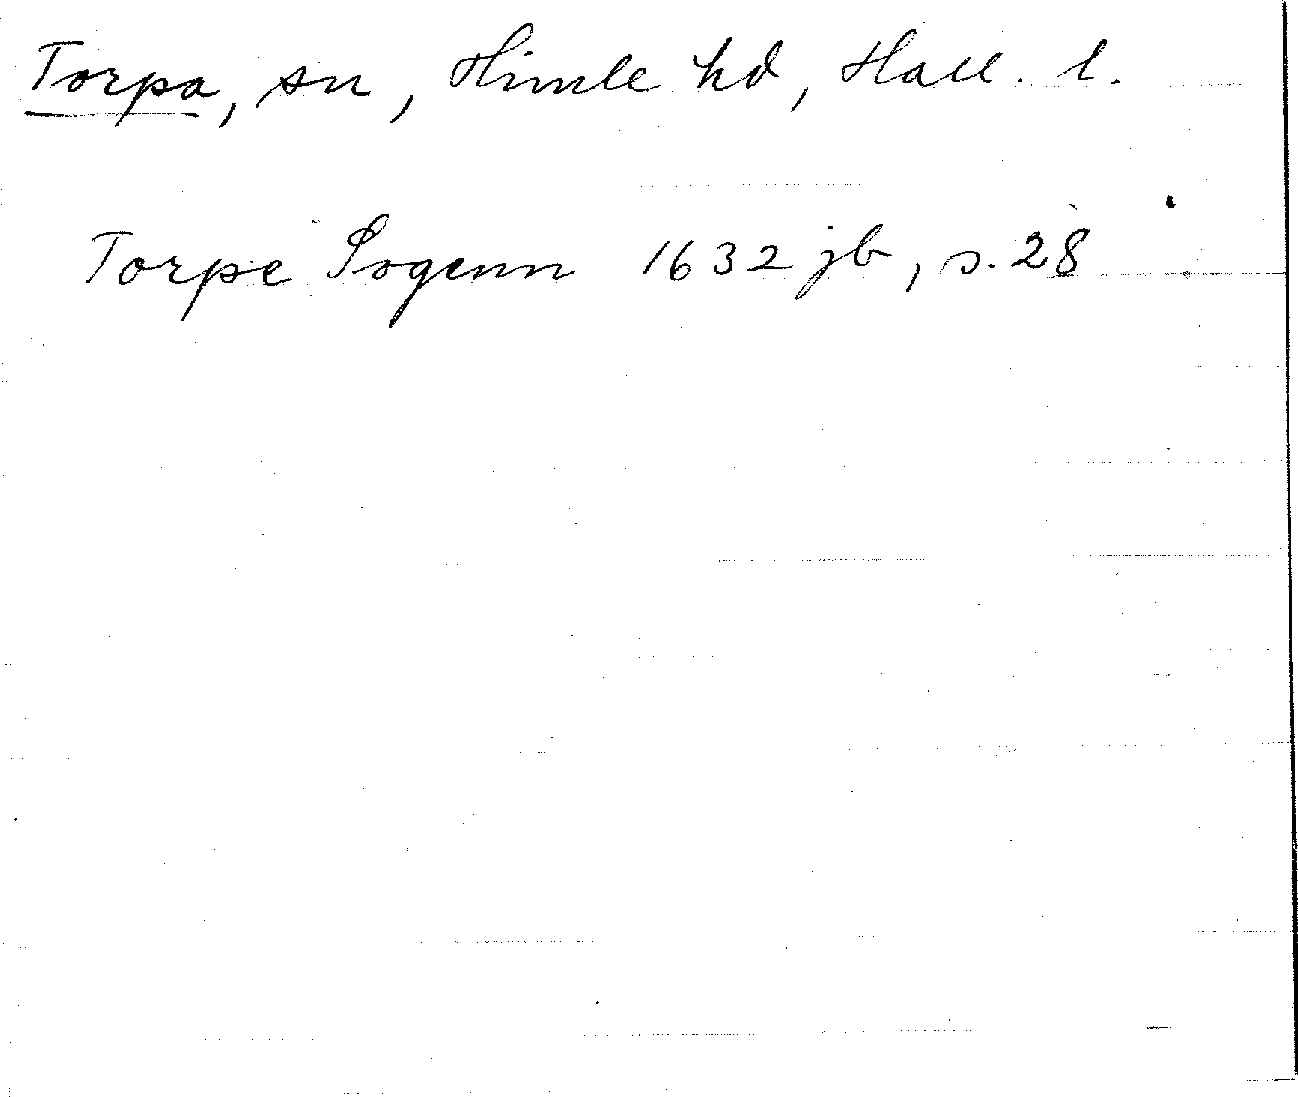 Torpa, sn, Himle hd, Hall. l.
Torpe Sogenn 1632 jb, s. 28